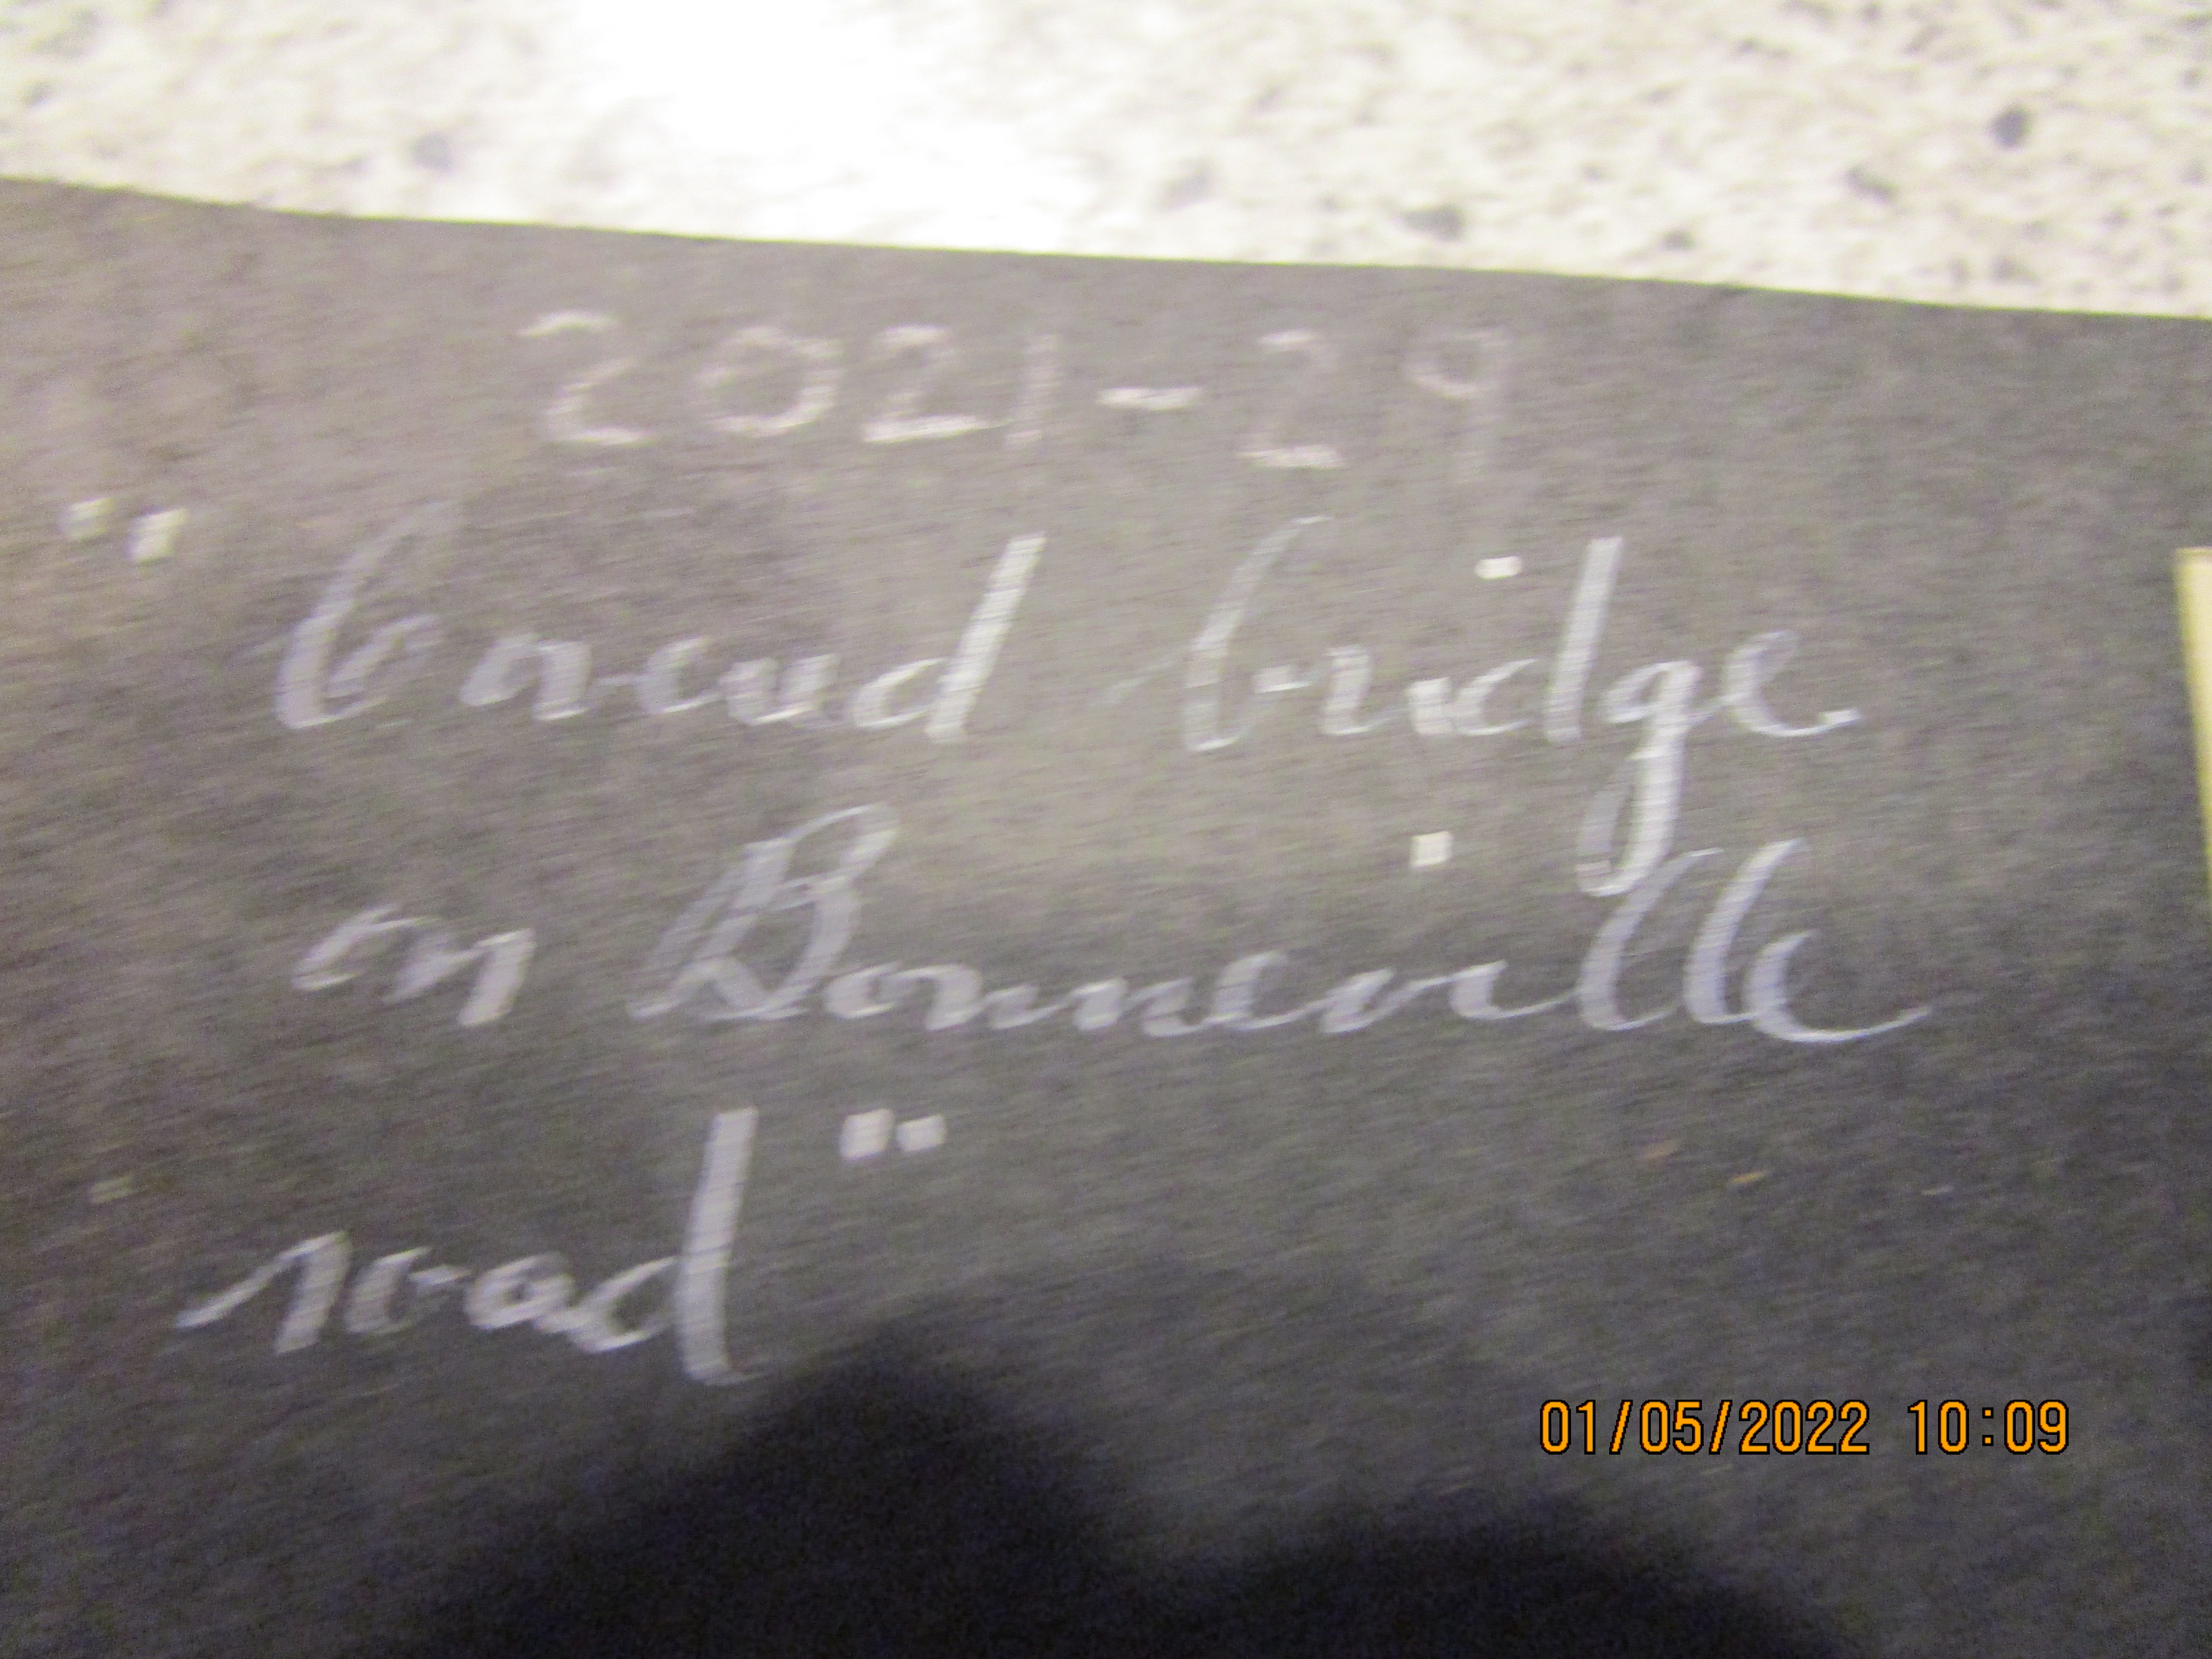 2021-29
" broad bridge
on Bonneville
road "
01/05/2022 10:09